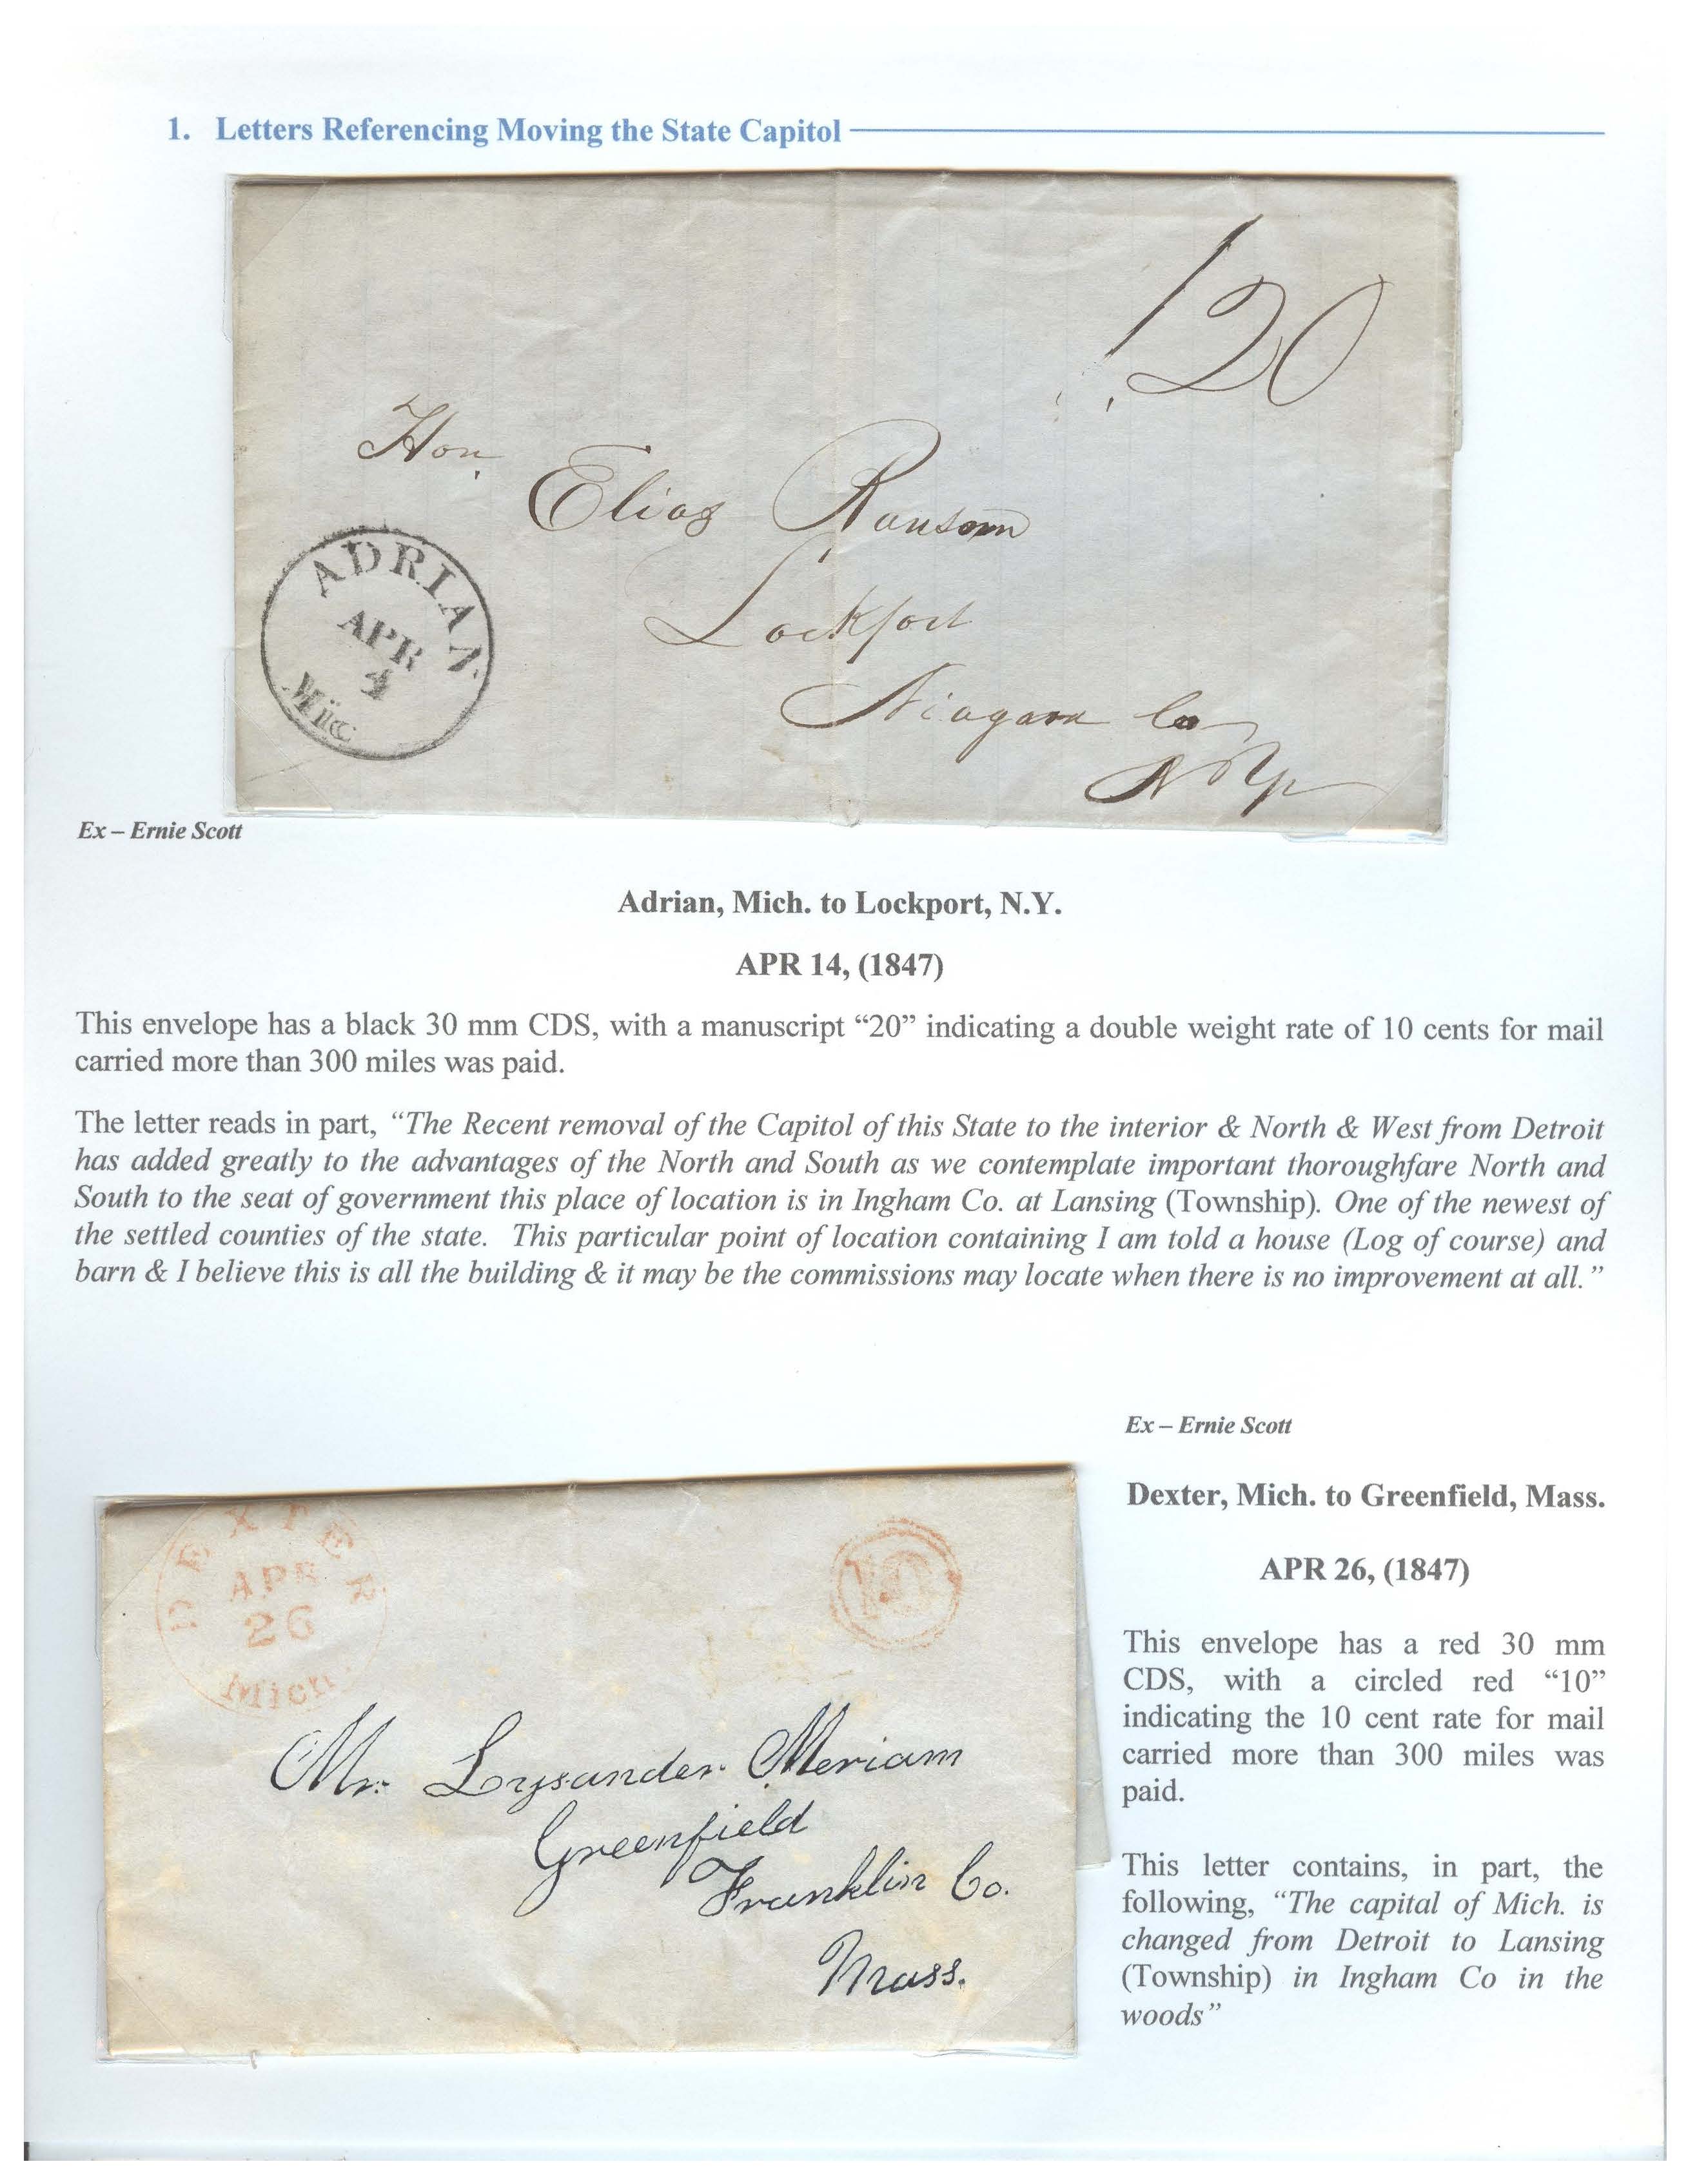 1. Letters Referencing Moving the State Capitol
120
Hon.
Elias Ransom
Lockport
Niagara Co
N Y
ADRIAN
APR
4
Mic
Ex – Ernie Scott
Adrian, Mich. to Lockport, N.Y.
APR 14, (1847)
This envelope has a black 30 mm CDS, with a manuscript “20” indicating a double weight rate of 10 cents for mail
carried more than 300 miles was paid.
The letter reads in part, “The Recent removal of the Capitol of this State to the interior & North & West from Detroit
has added greatly to the advantages of the North and South as we contemplate important thoroughfare North and
South to the seat of government this place of location is in Ingham Co. at Lansing (Township). One of the newest of
the settled counties of the state. This particular point of location containing I am told a house (Log of course) and
barn & I believe this is all the building & it may be the commissions may locate when there is no improvement at all.”
Ex – Ernie Scott
Dexter, Mich. to Greenfield, Mass.
APR 26, (1847)
This envelope has a red 30 mm
CDS, with a circled red “10”
indicating the 10 cent rate for mail
carried more than 300 miles was
paid.
This letter contains, in part, the
following, “The capital of Mich. is
changed from Detroit to Lansing
(Township) in Ingham Co in the
woods”
DEXTER
APR
26
Mich
10
Mr. Lysander Meriam
Greenfield
Franklin Co.
Mass.